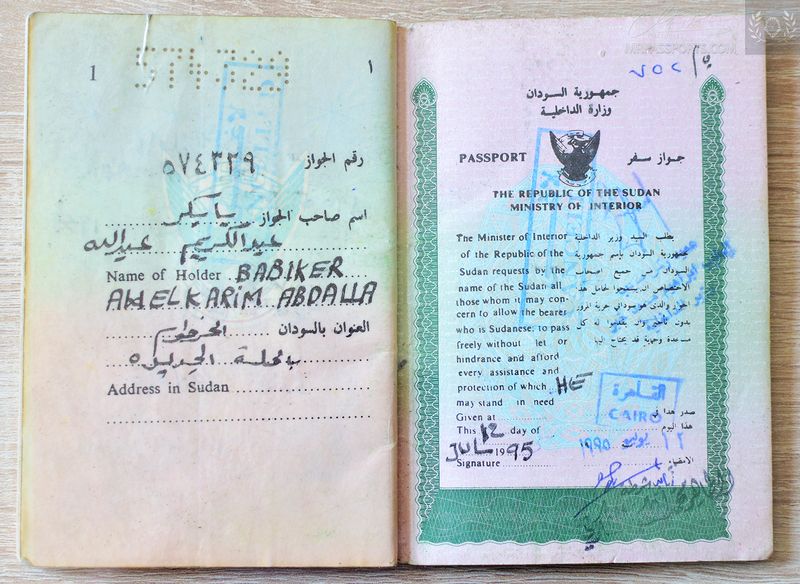 1
574329
١
رقم الجواز ٥٧٤٣٢٩
اسم صاحب الجواز بابكر
عبدالكريم عبدالله
Name of Holder BABIKER
ABDELKARIM ABDALLA
العنوان بالسودان
Address in Sudan
MRPASSPORTS.COM
٧٥٢
جمهورية السودان
وزارة الداخلية
PASSPORT
جواز سفر
THE REPUBLIC OF THE SUDAN
MINISTRY OF INTERIOR
The Minister of Interior
of the Republic of the
Sudan requests by the
name of the Sudan all
those whom it may con-
cern to allow the bearer
who is Sudanese, to pass
freely without let or
hindrance and afford
every assistance and
protection of which HE
may stand in need
Given at
This 12 day of
JUL 1995
Signature
يطلب السيد وزير الداخلية
لجمهورية السودان بإسم جمهورية
السودان من جميع اصحاب
الاختصاص ان يسمحوا لحامل هذا
الجواز والذي هو سوداني حرية المرور
بدون تأخير وان يقدموا له كل
مساعدة وحماية قد يحتاج اليها
القاهرة
CAIRO
صدر هذا في
هذا اليوم ١٢ يوليو ١٩٩٥
الامضاء